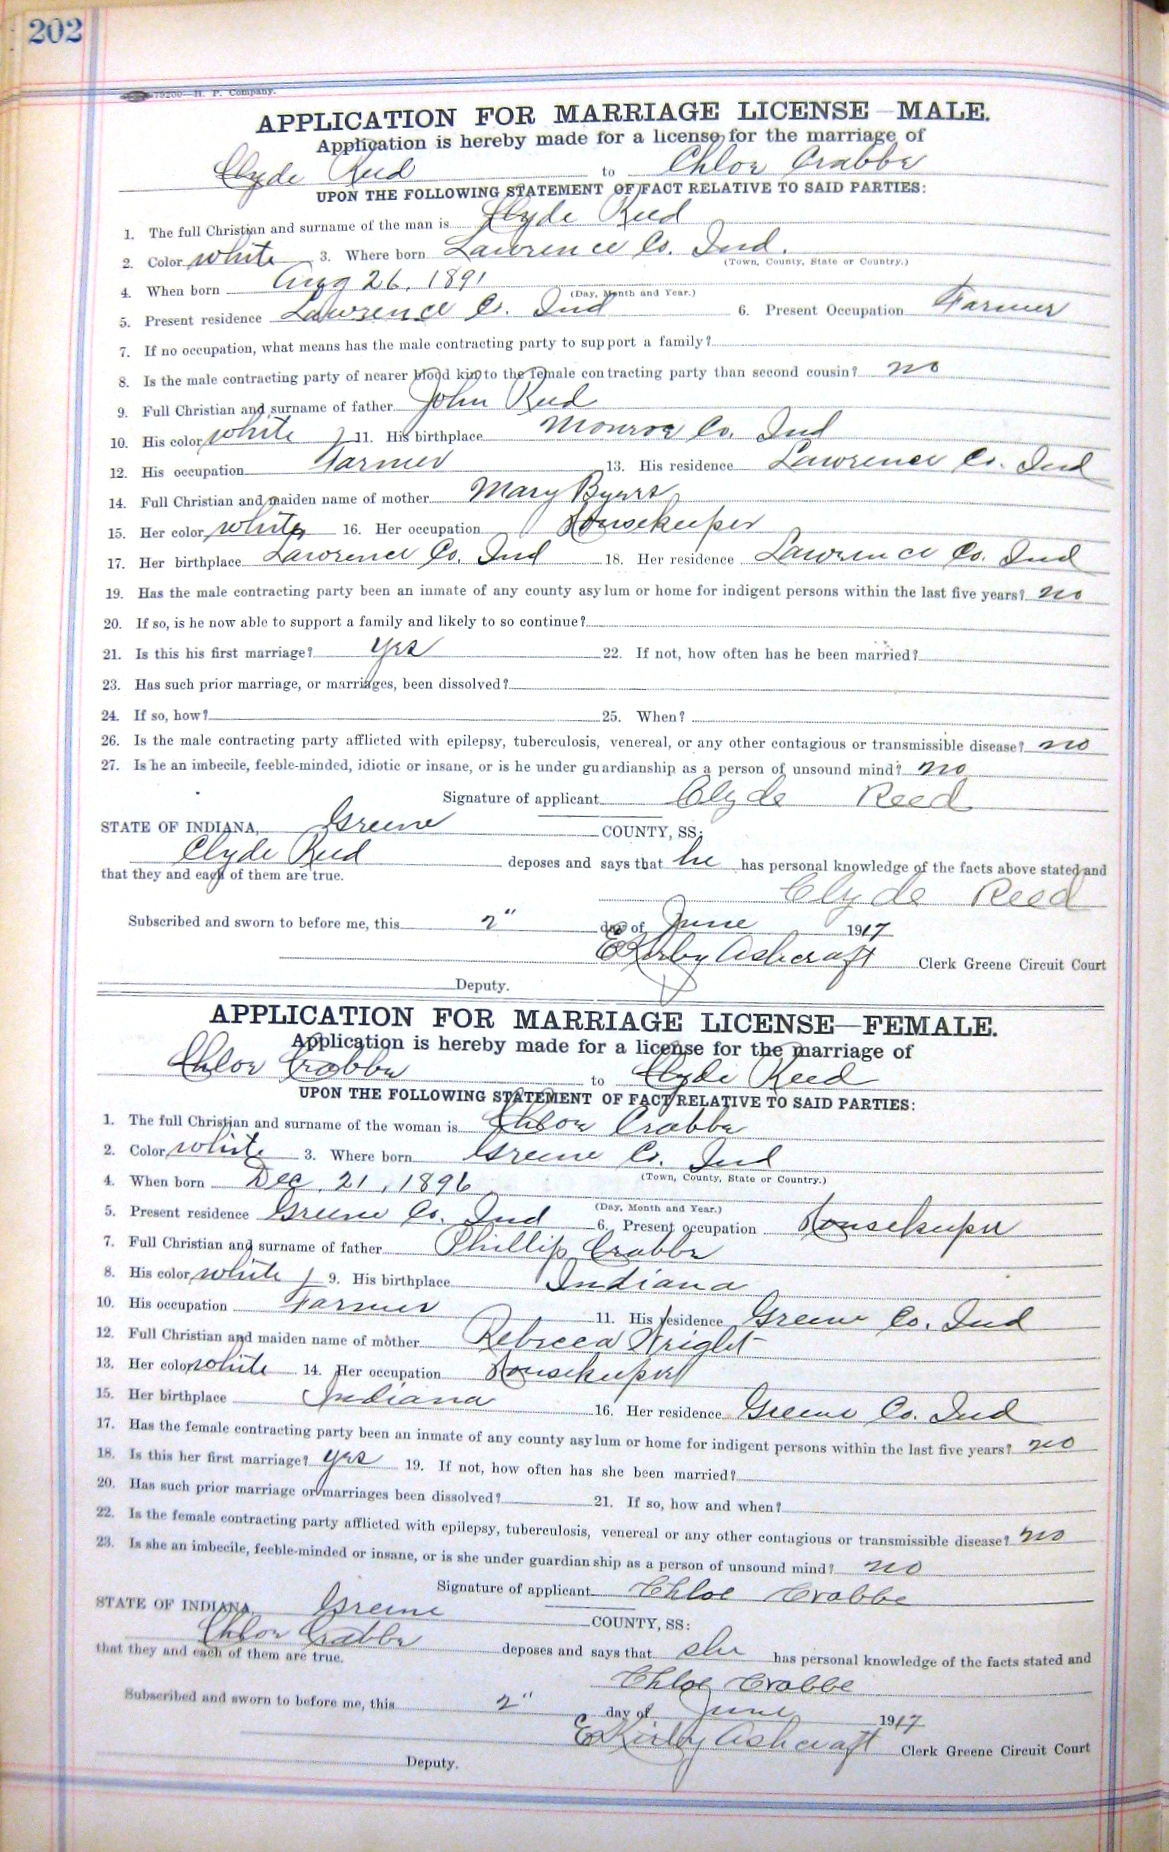 202
79200—H. P. Company.
APPLICATION FOR MARRIAGE LICENSE—MALE.
Application is hereby made for a license for the marriage of
Clyde Reed to Chloe Crabbe
UPON THE FOLLOWING STATEMENT OF FACT RELATIVE TO SAID PARTIES:
1. The full Christian and surname of the man is Clyde Reed
2. Color white 3. Where born Lawrence Co. Ind.
(Town, County, State or Country.)
4. When born Aug 26, 1891
(Day, Month and Year.)
5. Present residence Lawrence Co. Ind 6. Present Occupation Farmer
7. If no occupation, what means has the male contracting party to support a family?
8. Is the male contracting party of nearer blood kin to the female contracting party than second cousin? no
9. Full Christian and surname of father John Reed
10. His color white 11. His birthplace Monroe Co. Ind
12. His occupation Farmer 13. His residence Lawrence Co. Ind
14. Full Christian and maiden name of mother Mary Byers
15. Her color white 16. Her occupation Housekeeper
17. Her birthplace Lawrence Co. Ind 18. Her residence Lawrence Co. Ind
19. Has the male contracting party been an inmate of any county asylum or home for indigent persons within the last five years? no
20. If so, is he now able to support a family and likely to so continue?
21. Is this his first marriage? yes 22. If not, how often has he been married?
23. Has such prior marriage, or marriages, been dissolved?
24. If so, how? 25. When?
26. Is the male contracting party afflicted with epilepsy, tuberculosis, venereal, or any other contagious or transmissible disease? no
27. Is he an imbecile, feeble-minded, idiotic or insane, or is he under guardianship as a person of unsound mind? no
Signature of applicant Clyde Reed
STATE OF INDIANA, Greene COUNTY, SS:
Clyde Reed deposes and says that he has personal knowledge of the facts above stated and
that they and each of them are true.
Clyde Reed
Subscribed and sworn to before me, this 2" day of June 1917
E Kirby Ashcraft Clerk Greene Circuit Court
Deputy.
APPLICATION FOR MARRIAGE LICENSE—FEMALE.
Application is hereby made for a license for the marriage of
Chloe Crabbe to Clyde Reed
UPON THE FOLLOWING STATEMENT OF FACT RELATIVE TO SAID PARTIES:
1. The full Christian and surname of the woman is Chloe Crabbe
2. Color white 3. Where born Greene Co. Ind
(Town, County, State or Country.)
4. When born Dec. 21, 1896
(Day, Month and Year.)
5. Present residence Greene Co. Ind 6. Present occupation Housekeeper
7. Full Christian and surname of father Phillip Crabbe
8. His color white 9. His birthplace Indiana
10. His occupation Farmer 11. His residence Greene Co. Ind
12. Full Christian and maiden name of mother Rebecca Wright
13. Her color white 14. Her occupation Housekeeper
15. Her birthplace Indiana 16. Her residence Greene Co. Ind
17. Has the female contracting party been an inmate of any county asylum or home for indigent persons within the last five years? no
18. Is this her first marriage? yes 19. If not, how often has she been married?
20. Has such prior marriage or marriages been dissolved? 21. If so, how and when?
22. Is the female contracting party afflicted with epilepsy, tuberculosis, venereal or any other contagious or transmissible disease? no
23. Is she an imbecile, feeble-minded or insane, or is she under guardianship as a person of unsound mind? no
Signature of applicant Chloe Crabbe
STATE OF INDIANA, Greene COUNTY, SS:
Chloe Crabbe deposes and says that she has personal knowledge of the facts stated and
that they and each of them are true.
Chloe Crabbe
Subscribed and sworn to before me, this 2" day of June 1917
E Kirby Ashcraft Clerk Greene Circuit Court
Deputy.